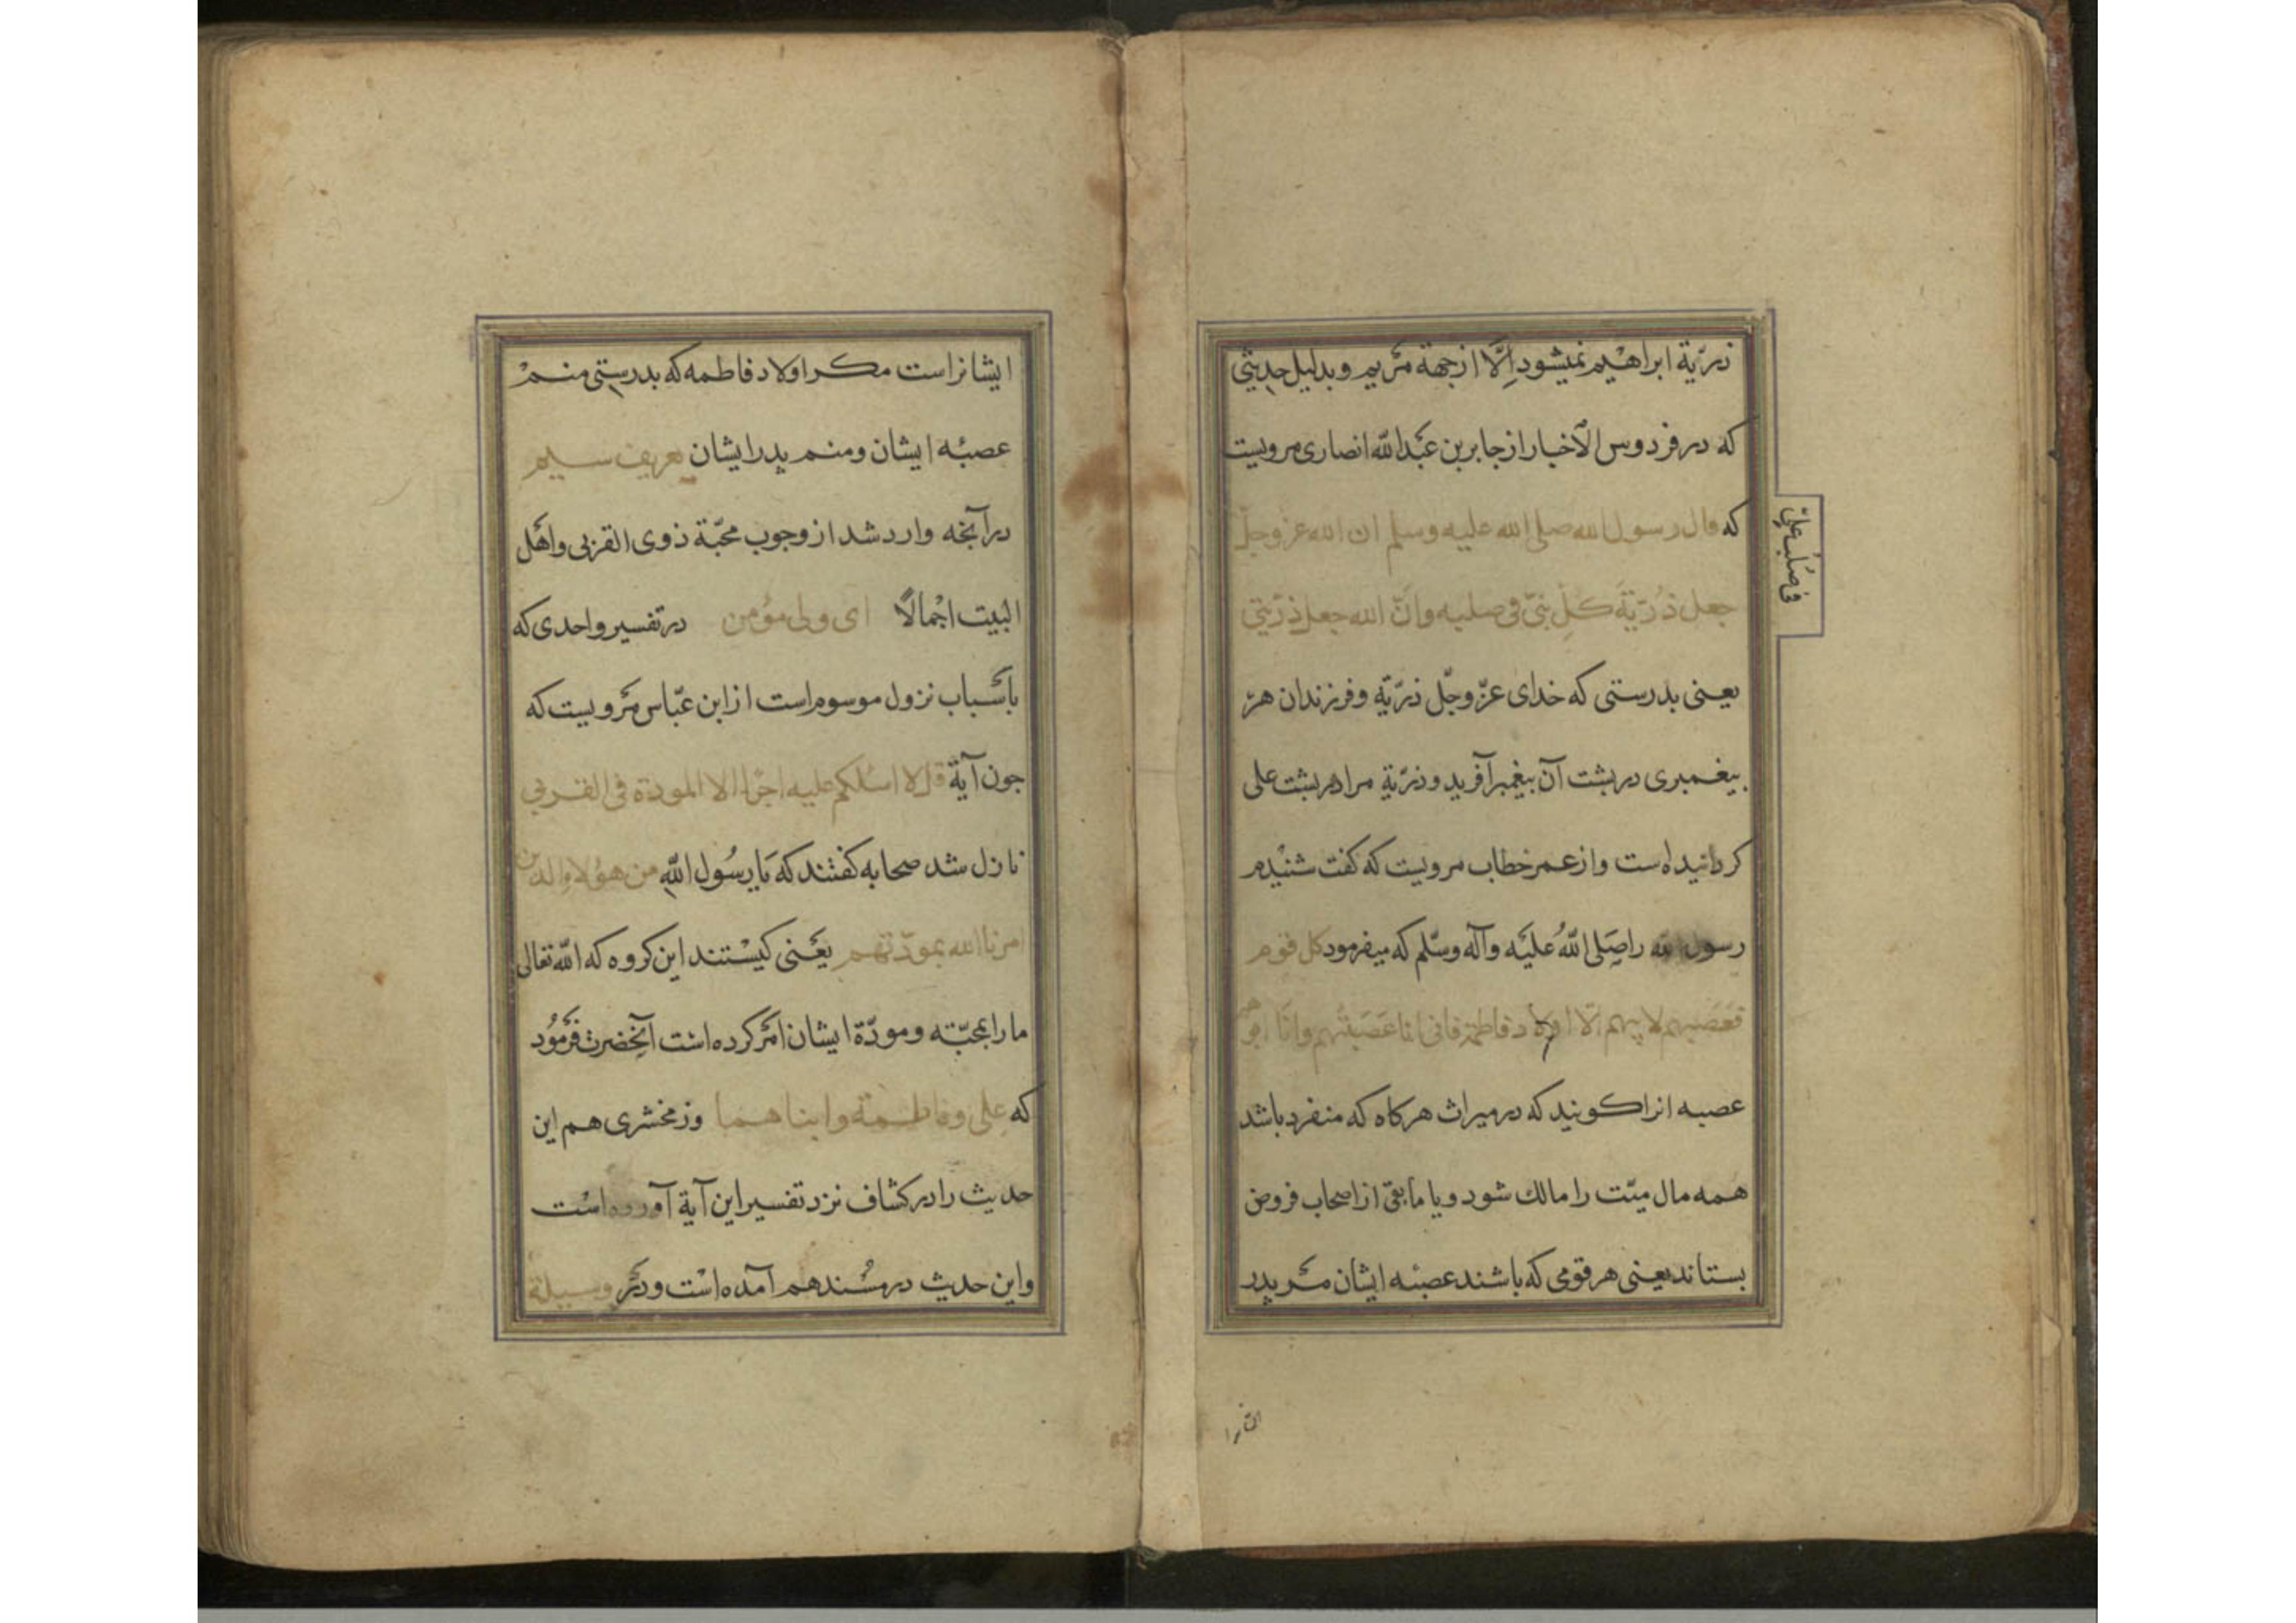 ذرّیة ابراهیم نمیشود اِلَّا از جهة مَریم و بدلیل حدیثی
که در فردوس الاخبار از جابر بن عَبْدالله انصاری مرویست
که قال رسول الله صلی الله علیه وسلم ان الله عز وجلّ
جعل ذُرّیّةَ کلِّ نبیّ فی صلبه وانّ الله جعل ذرّیتی
فی صُلب علیّ
یعنی بدرستی که خدای عزّ وجّل ذرّیّه وفرزندان هر
بیغمبری در بشت آن بیغمبر آفرید وذرّیة مرا در بشت علی
کردانیده است و از عمر خطاب مرویست که کفت شنیدم
رسول الله را صَلی اللهُ علیَه وآله وسّلم که میفرمود کل قوم
فعَصَبهم لابیهم الّا اولاد فاطمة فانی انا عَصَبتُهم وانَا ابوهم
عصبه انرا کویند که در میراث هرکاه که منفرد باشد
همه مال میّت را مالك شود و یا مابقی از اصحاب فروض
بستاند یعنی هر قومی که باشند عصبهٔ ایشان مر بدر
ایشانراست مکر اولاد فاطمه که بدرستی منم
عصبهٔ ایشان ومنم بدر ایشان تعریف سیم
در آنجه وارد شد از وجوب محبّة ذوی القربی واهْل
البیت اجْمالًا ای ولی مؤمن در تفسیر واحدی که
باَسْباب نزول موسوم است از ابن عبّاس مَرویست که
جون آیة قل لا اسئلکم علیه اجرًا الا المودة فی القربی
نازل شد صحابه کفتند که یَا رسُول اللهِ من هؤلاء الذین
امرنا الله بمودّتهم یَعْنی کیسْتند این کروه که الله تعالی
ما را بمحبّته ومودّة ایشان اَمر کرده است آنحضرت فرمُود
که علی وفاطمة وابناهما وزمخشری هم این
حدیث را در کشاف نزد تفسیر این آیة آورده است
واین حدیث در مسْند هم آمده است ودر وسیلة